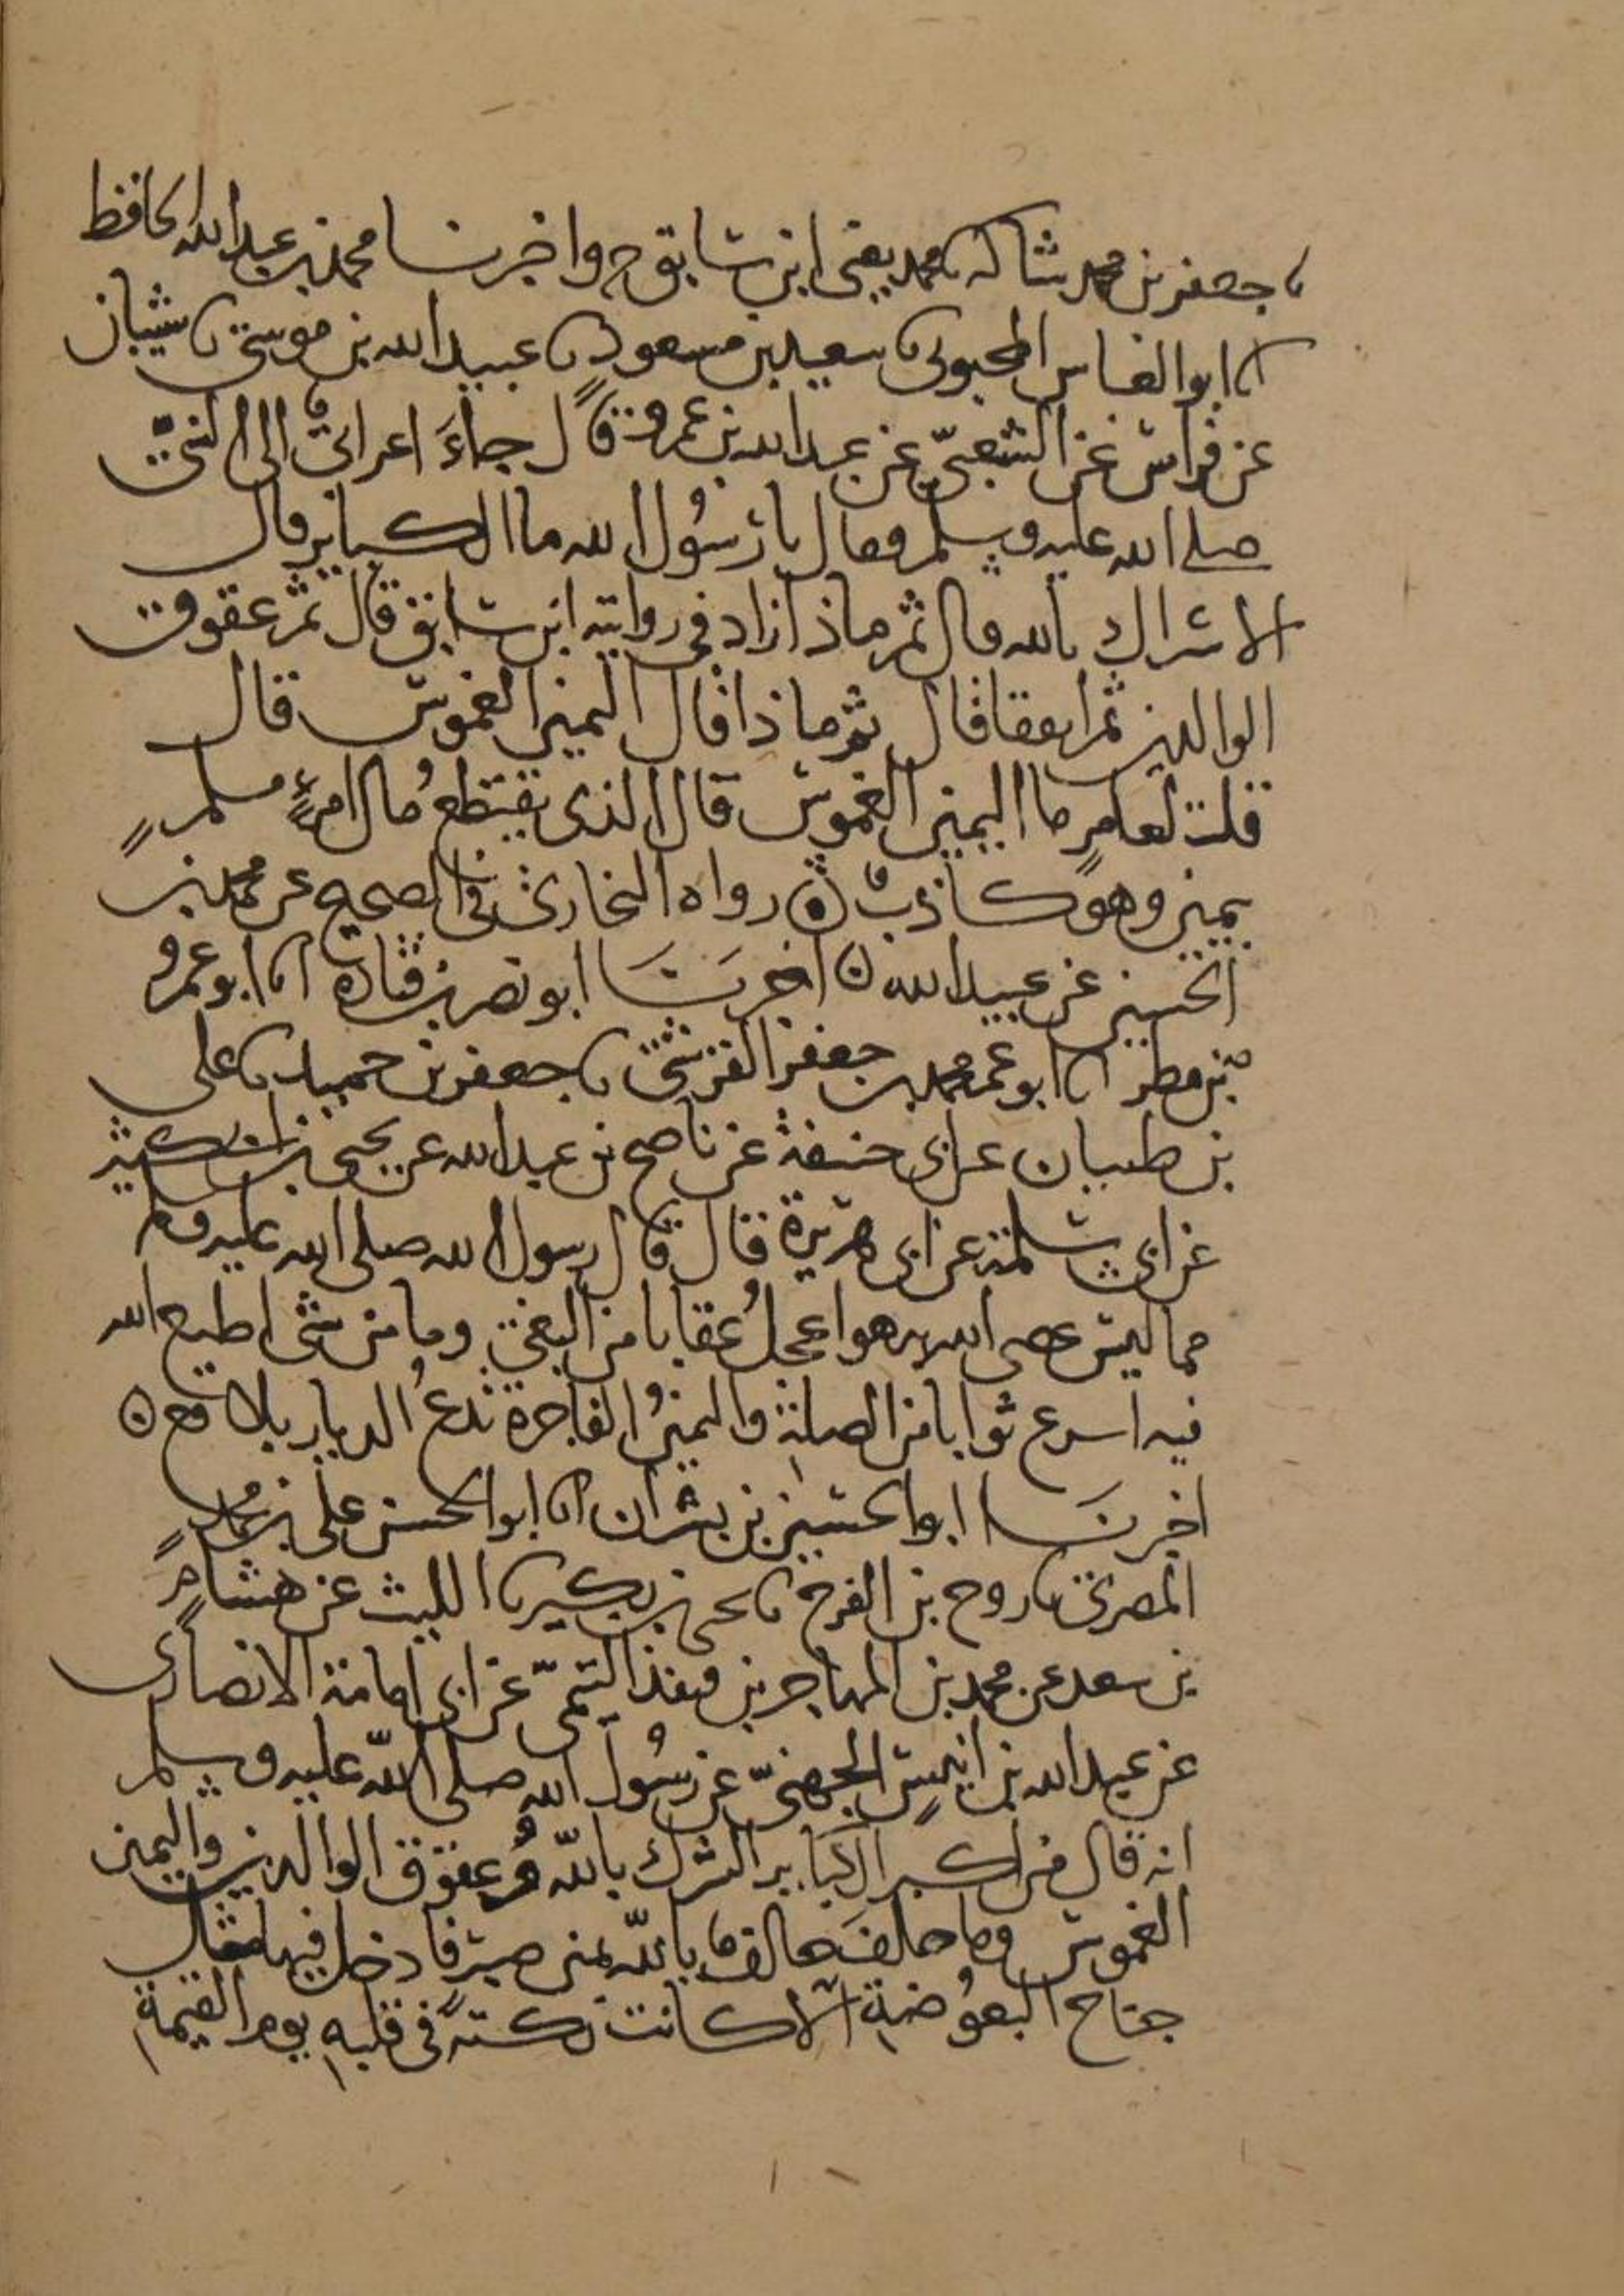 ثا جعفر بن محمد بن شاكر ثا محمد يعنى ابن سابق ح واخبرنا محمد بن عبد الله الحافظ
انا ابو العباس المحبوبى ثا سعيد بن مسعود ثا عبيد الله بن موسى ثا شيبان
عن فراس عن الشعبىّ عن عبد الله بن عمرو قال جاءَ اعرابىٌّ الى النبىّ
صلى الله عليه وسلم فقال يا رسُول الله ما الكبائر قال
الاشراك بالله قال ثم ماذا زاد فى رواية ابن سابق قال ثم عقوق
الوالدين ثم اتفقا قال ثم ماذا قال اليمين الغموس قال
قلت لعامرٍ ما اليمين الغموس قال الذى يقتطعُ مال امرءٍ مسلمٍ
بيمين وهو كاذبٌ رواه البخارى فى الصحيح عن محمد بن
الحسين عن عبيد الله اخبرنَا ابو نصر بن قتادة انا ابو عمرو
بن مطر انا ابو عمر محمد بن جعفر القرشى ثا جعفر بن حميد ثا على
بن ظبيان عن ابى حنيفة عن ناصح بن عبد الله عن يحيى بن ابى كثير
عن ابى سلمة عن ابى هريرة قال قال رسول الله صلى الله عليه وسلم
مما ليس عصى الله به هو اعجلُ عقابا من البغى وما من شى اطيع الله
فيه اسرع ثوابا من الصلة واليمينُ الفاجرة تدعُ الديار بلاقع
اخبرنَا ابو الحسين بن بشران انا ابو الحسن على بن محمدٍ
المصرى ثا روح بن الفرج ثا يحيى بن بكير ثا الليث عن هشامٍ
بن سعد عن محمد بن المهاجر بن قنفذ التيمىّ عن ابى امامة الانصارى
عن عبد الله بن انيسٍ الجهنىّ عن رسُول الله صلى اللّه عليه وسلم
انه قال من اكبر الكبَاير الشرك باللّه وعقوق الوالدين واليمين
الغموس وما حلفَ حالفٌ باللّه يمين صبرٍ فادخل فيها مثال
جناح البعُوضةِ الّا كانت نكتةً فى قلبهِ يوم القيمةِ